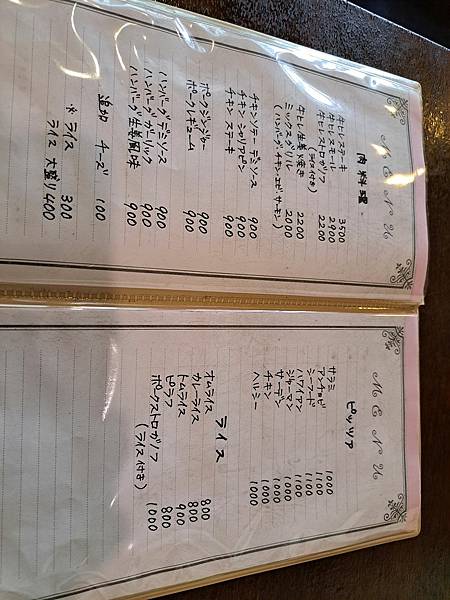 MENU
肉料理
牛ヒレステーキ 3500
牛ヒレスモール 2900
牛ヒレストロガノフ 2200
(ライス付き)
牛ヒレ生姜焼き 2200
ミックスグリル 2000
(ハンバーグ・チキン・エビ・サーモン)
チキンソテー デミソース 900
チキン シャリアピン 900
チキン ステーキ 900
ポークジンジャー 900
ポークレギューム 900
ハンバーグ デミソース 900
ハンバーグ ガーリック 900
ハンバーグ 生姜風味 900
追加 チーズ 100
※ライス 300
ライス 大盛り 400
MENU
ピッツァ
サラミ 1000
アンチョビ 1100
シーフード 1100
ハワイアン 1100
ジャーマン 1000
サーデン 1000
チキン 1000
ヘルシー 1000
ライス
オムライス 800
カレーライス 800
トムライス 900
ピラフ 800
ポークストロガノフ 1000
(ライス付き)